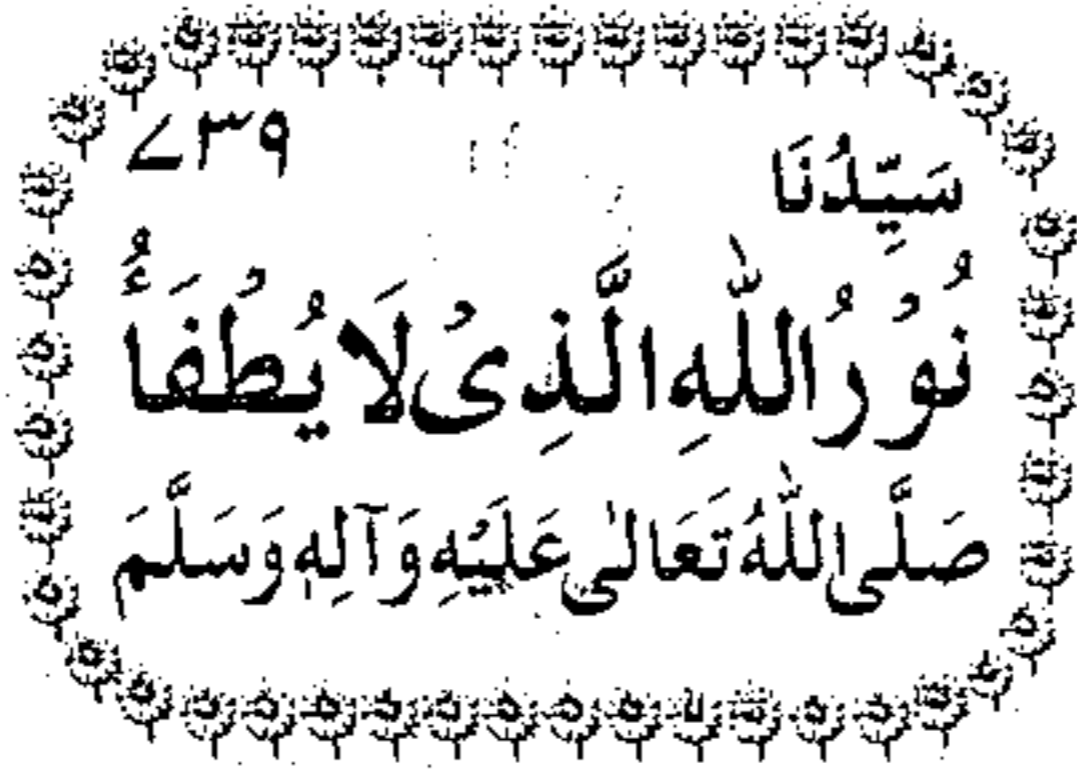 سَيِّدُنَا ۷۳۹
نُوْرُ اللّٰهِ الَّذِىْ لَا يُطْفَأُ
صَلَّى اللّٰهُ تَعَالٰى عَلَيْهِ وَآلِهٖ وَسَلَّمَ